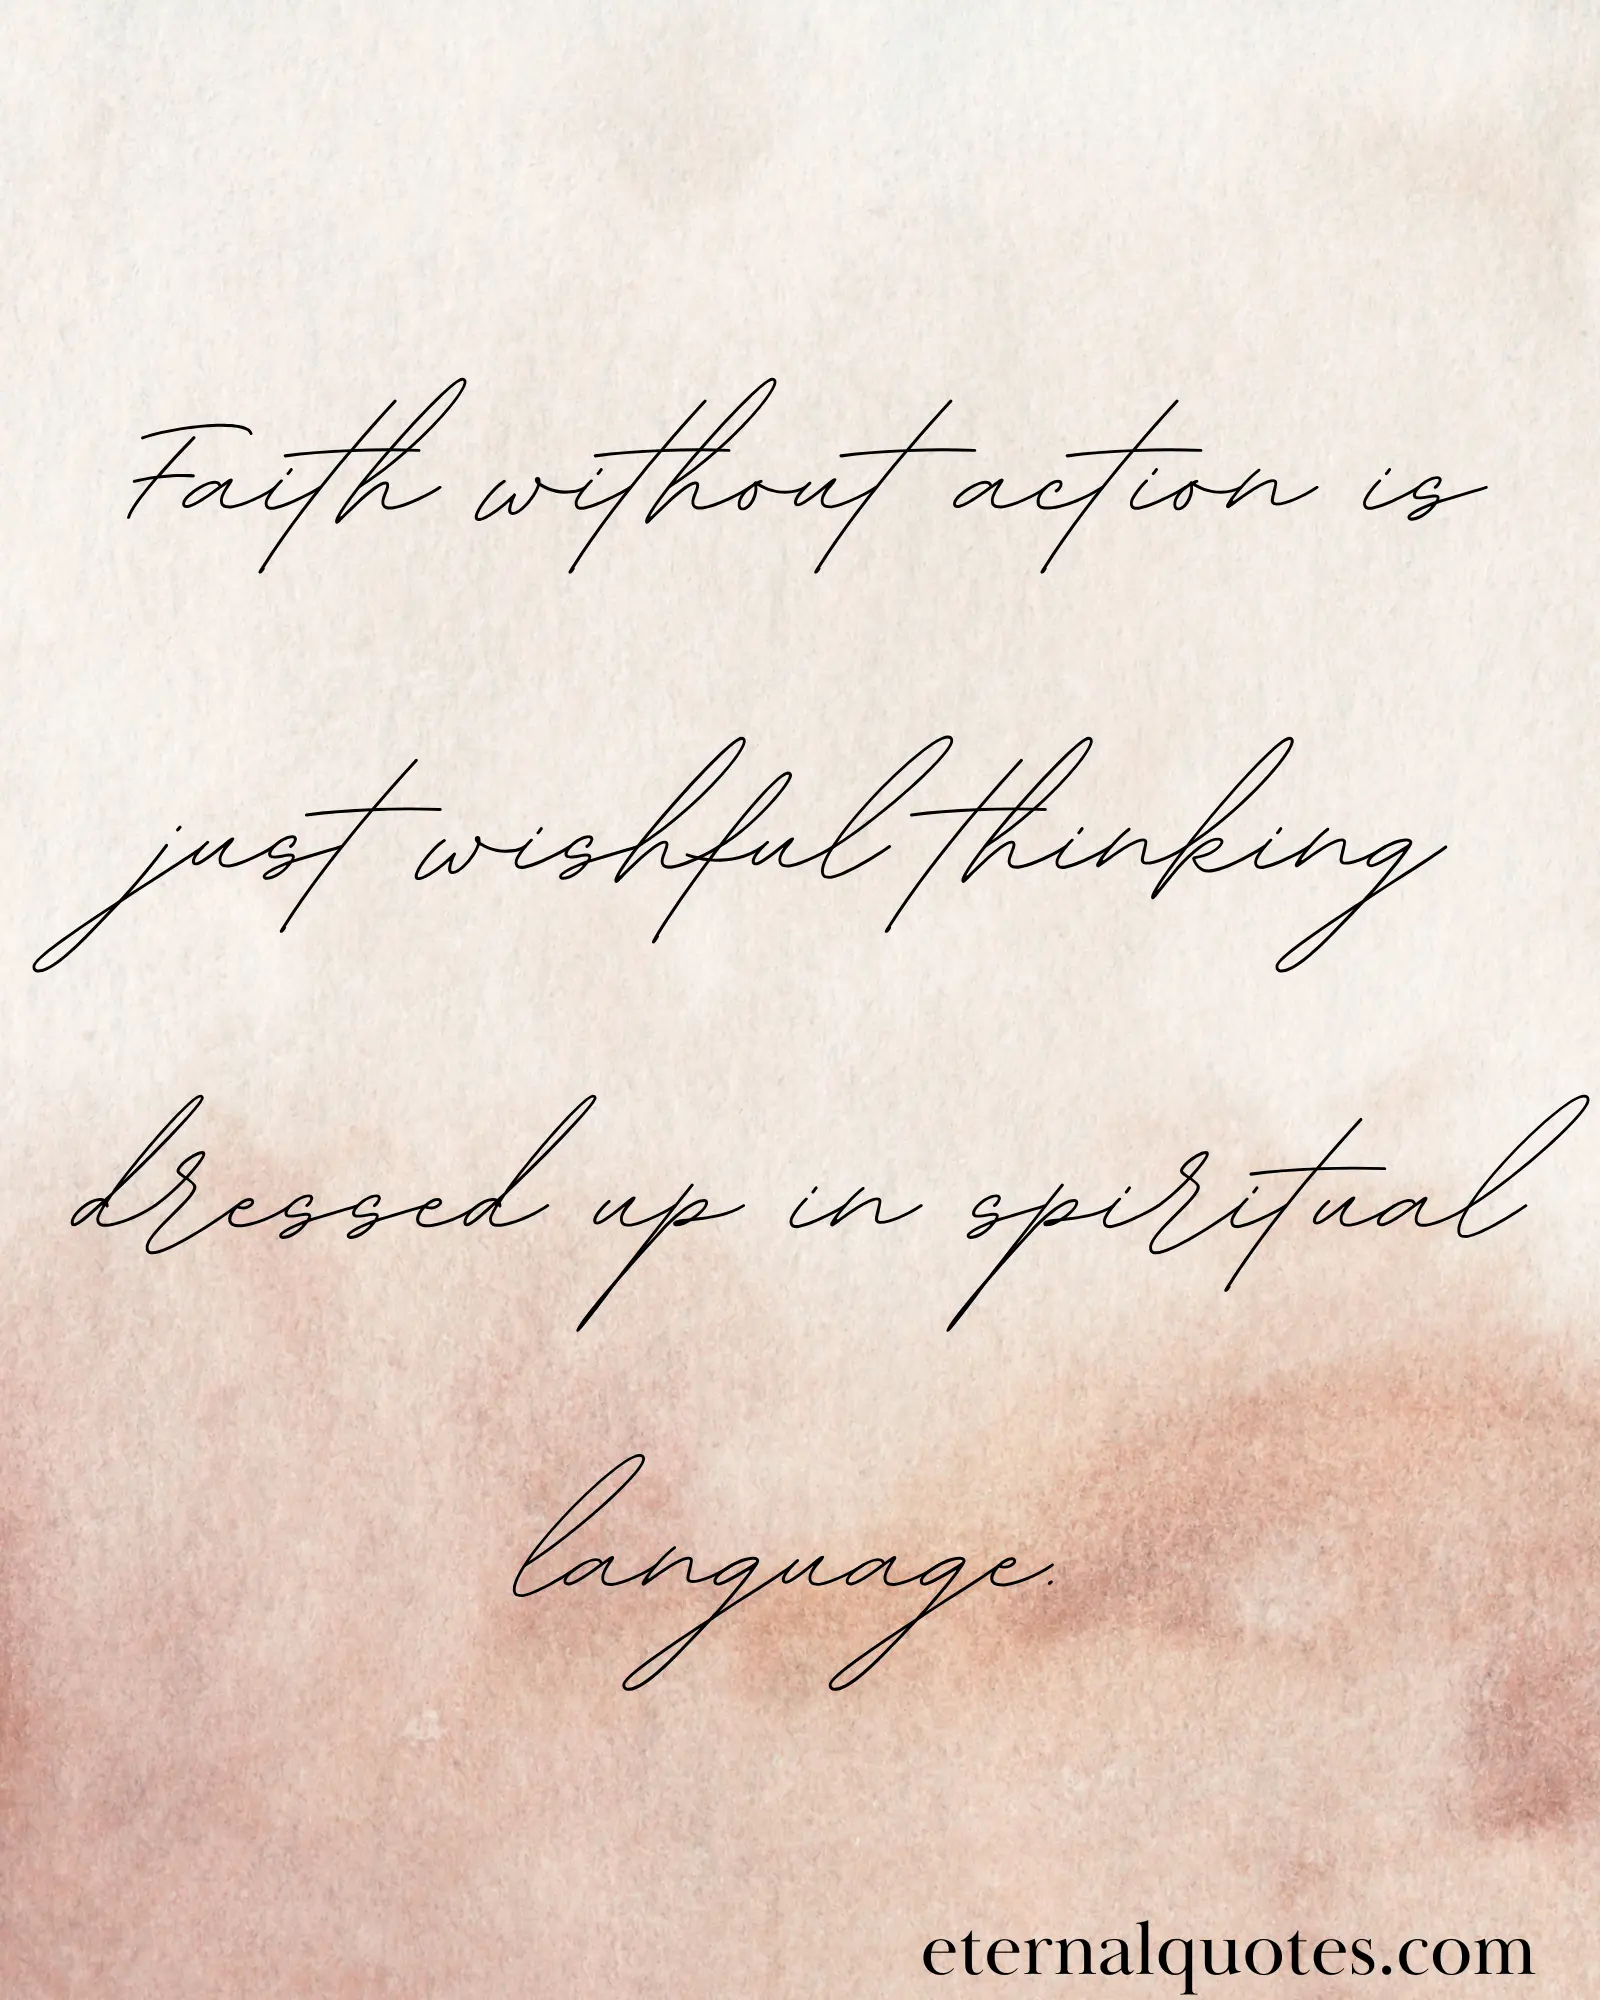 Faith without action is
just wishful thinking
dressed up in spiritual
language.
eternalquotes.com